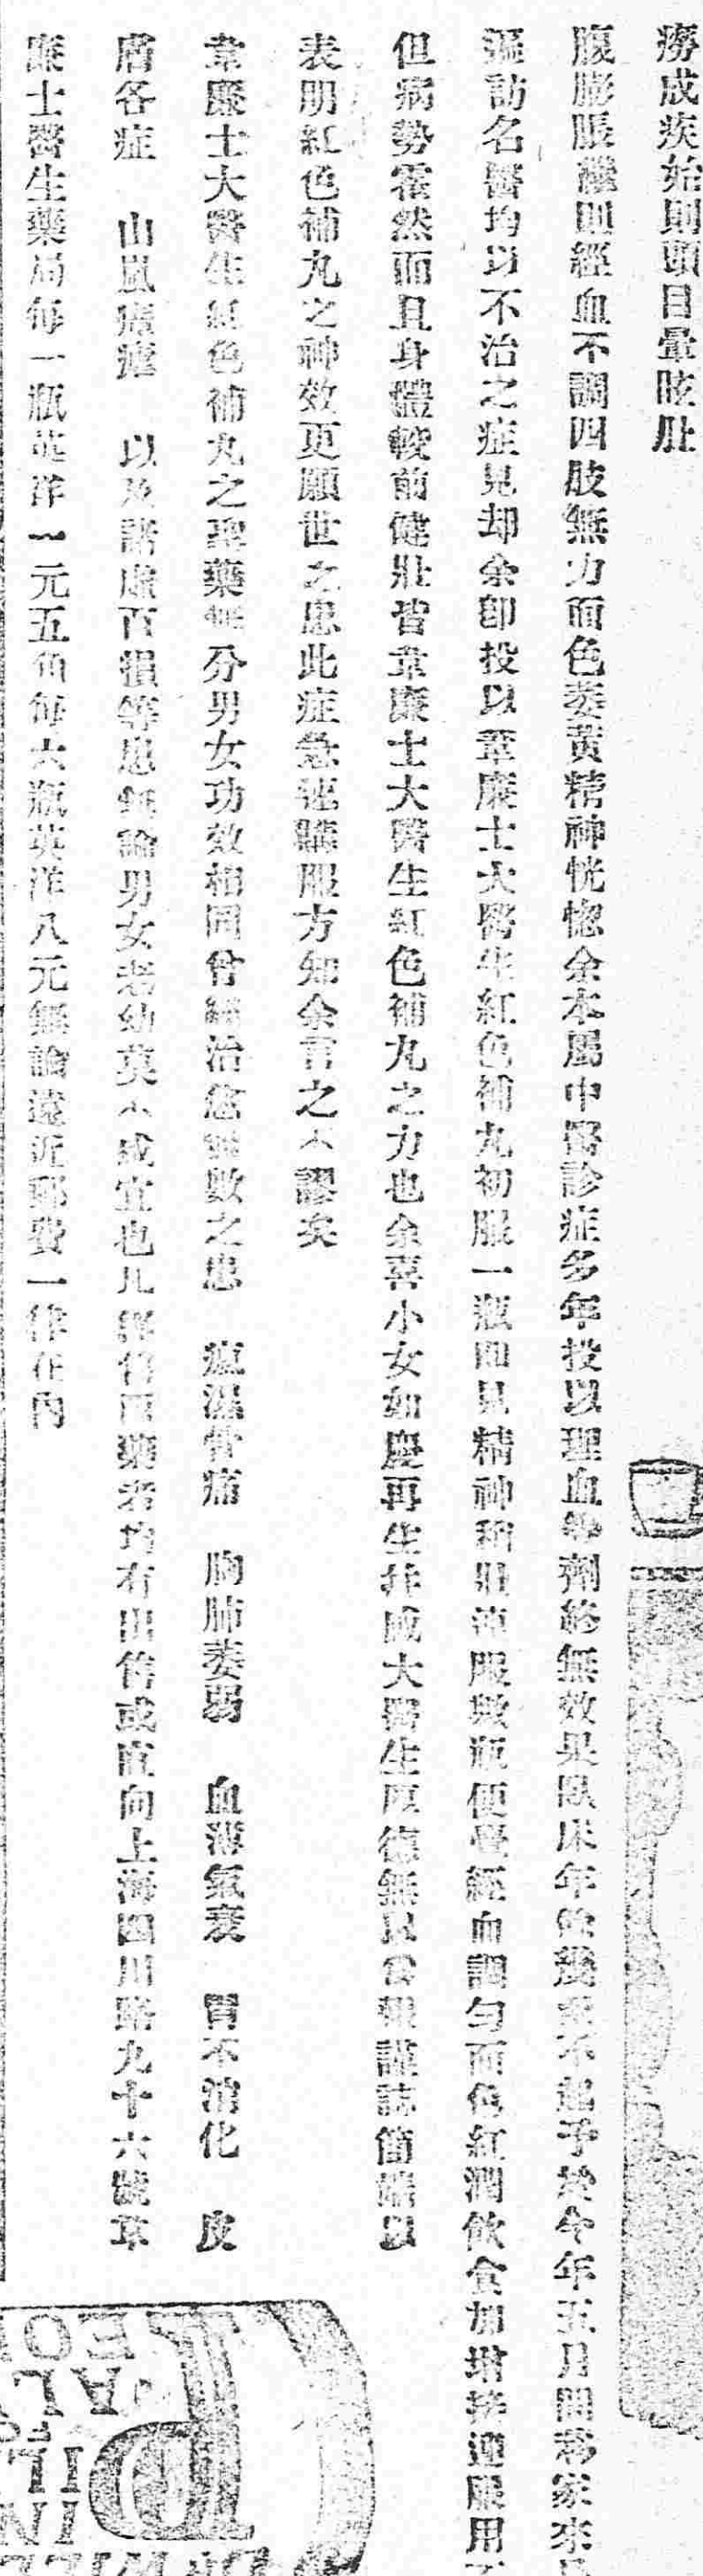 癆成疾始則頭目暈眩肚
腹膨脹繼則經血不調四肢無力面色萎黃精神恍惚余本屬中醫診症多年投以理血等劑終無效果臥床年餘幾至不起予於今年五月間移家來
遍訪名醫均以不治之症見却余卽投以韋廉士大醫生紅色補丸初服一瓶卽見精神稍壯連服數瓶便覺經血調勻面色紅潤飲食加增接連服用不
但病勢霍然而且身體較前健壯皆韋廉士大醫生紅色補丸之力也余喜小女如慶再生拜感大醫生厚德無以爲報謹誌簡端以
表明紅色補丸之神效更願世之患此症急速購服方知余言之不謬矣
韋廉士大醫生紅色補丸之聖藥無分男女功效相同曾經治愈無數之患 瘋濕骨痛 胸肺萎弱 血薄氣衰 胃不消化 皮
膚各症 山嵐瘴瘧 以及諸虛百損等患無論男女老幼莫不咸宜也凡經售西藥者均有出售或直向上海四川路九十六號韋
廉士醫生藥局每一瓶英洋一元五角每六瓶英洋八元無論遠近郵費一律在內